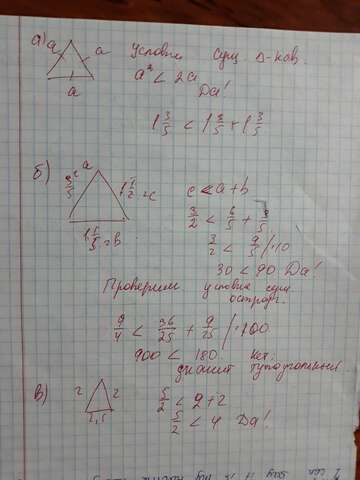 а) a a Условия сущ. Δ-ков.
a a² < 2a
Да!
1 3/5 < 1 3/5 + 1 3/5
б) 3/5 = a 1 1/2 = c c < a + b
1 1/5 = b 3/2 < 6/5 + 3/5
3/2 < 9/5 / ·10
30 < 90 Да!
Проверим условие сущ.
остроуг.
9/4 < 36/25 + 9/25 / ·100
900 < 180 Нет.
значит тупоугольный
в) 2 2 5/2 < 2 + 2
2,5 5/2 < 4 Да!